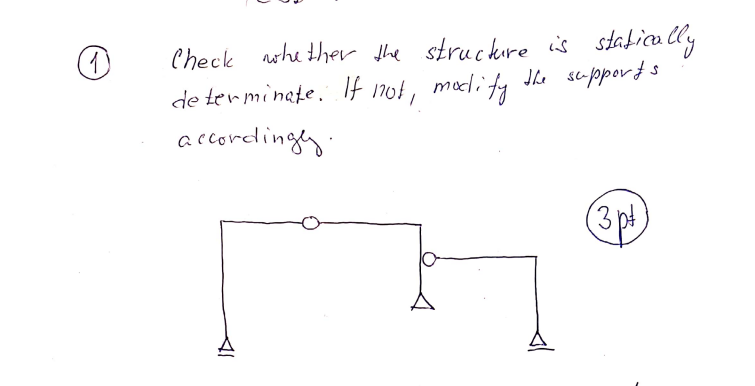 ① Check whether the structure is statically
determinate. If not, modify the supports
accordingly.
3 pt